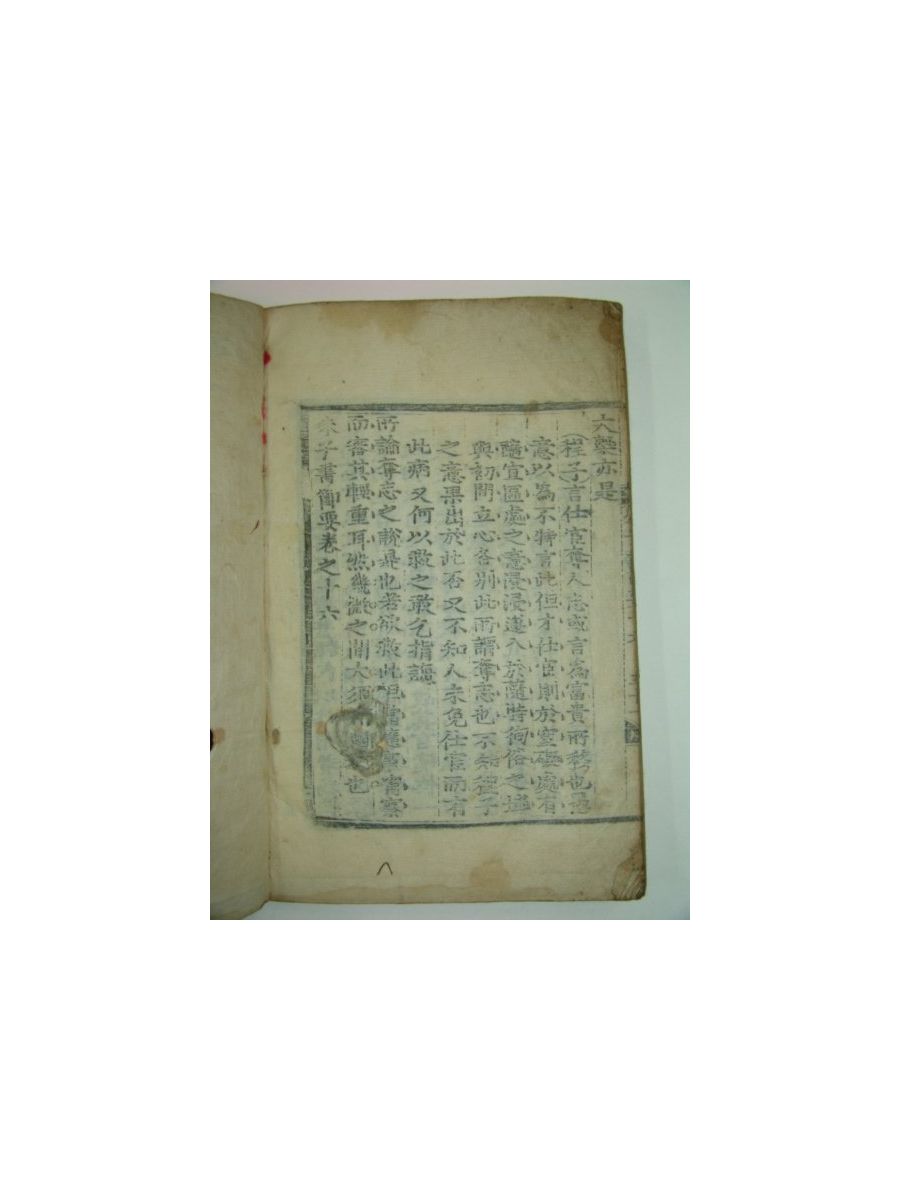 六藝亦是
程子言仕宦奪人志或言為富貴所移也愚
意以為不特言此但才仕宦則於窒礙處有
隨宜區處之意浸浸遂入於隨時徇俗之域
與初間立心各別此所謂奪志也不知程子
之意果出於此否又不知人未免仕宦而有
此病又何以救之敢乞指誨
所論奪志之說是也若欲救此但當隨事省察
而審其輕重耳然幾微之間大須也
朱子書節要卷之十六